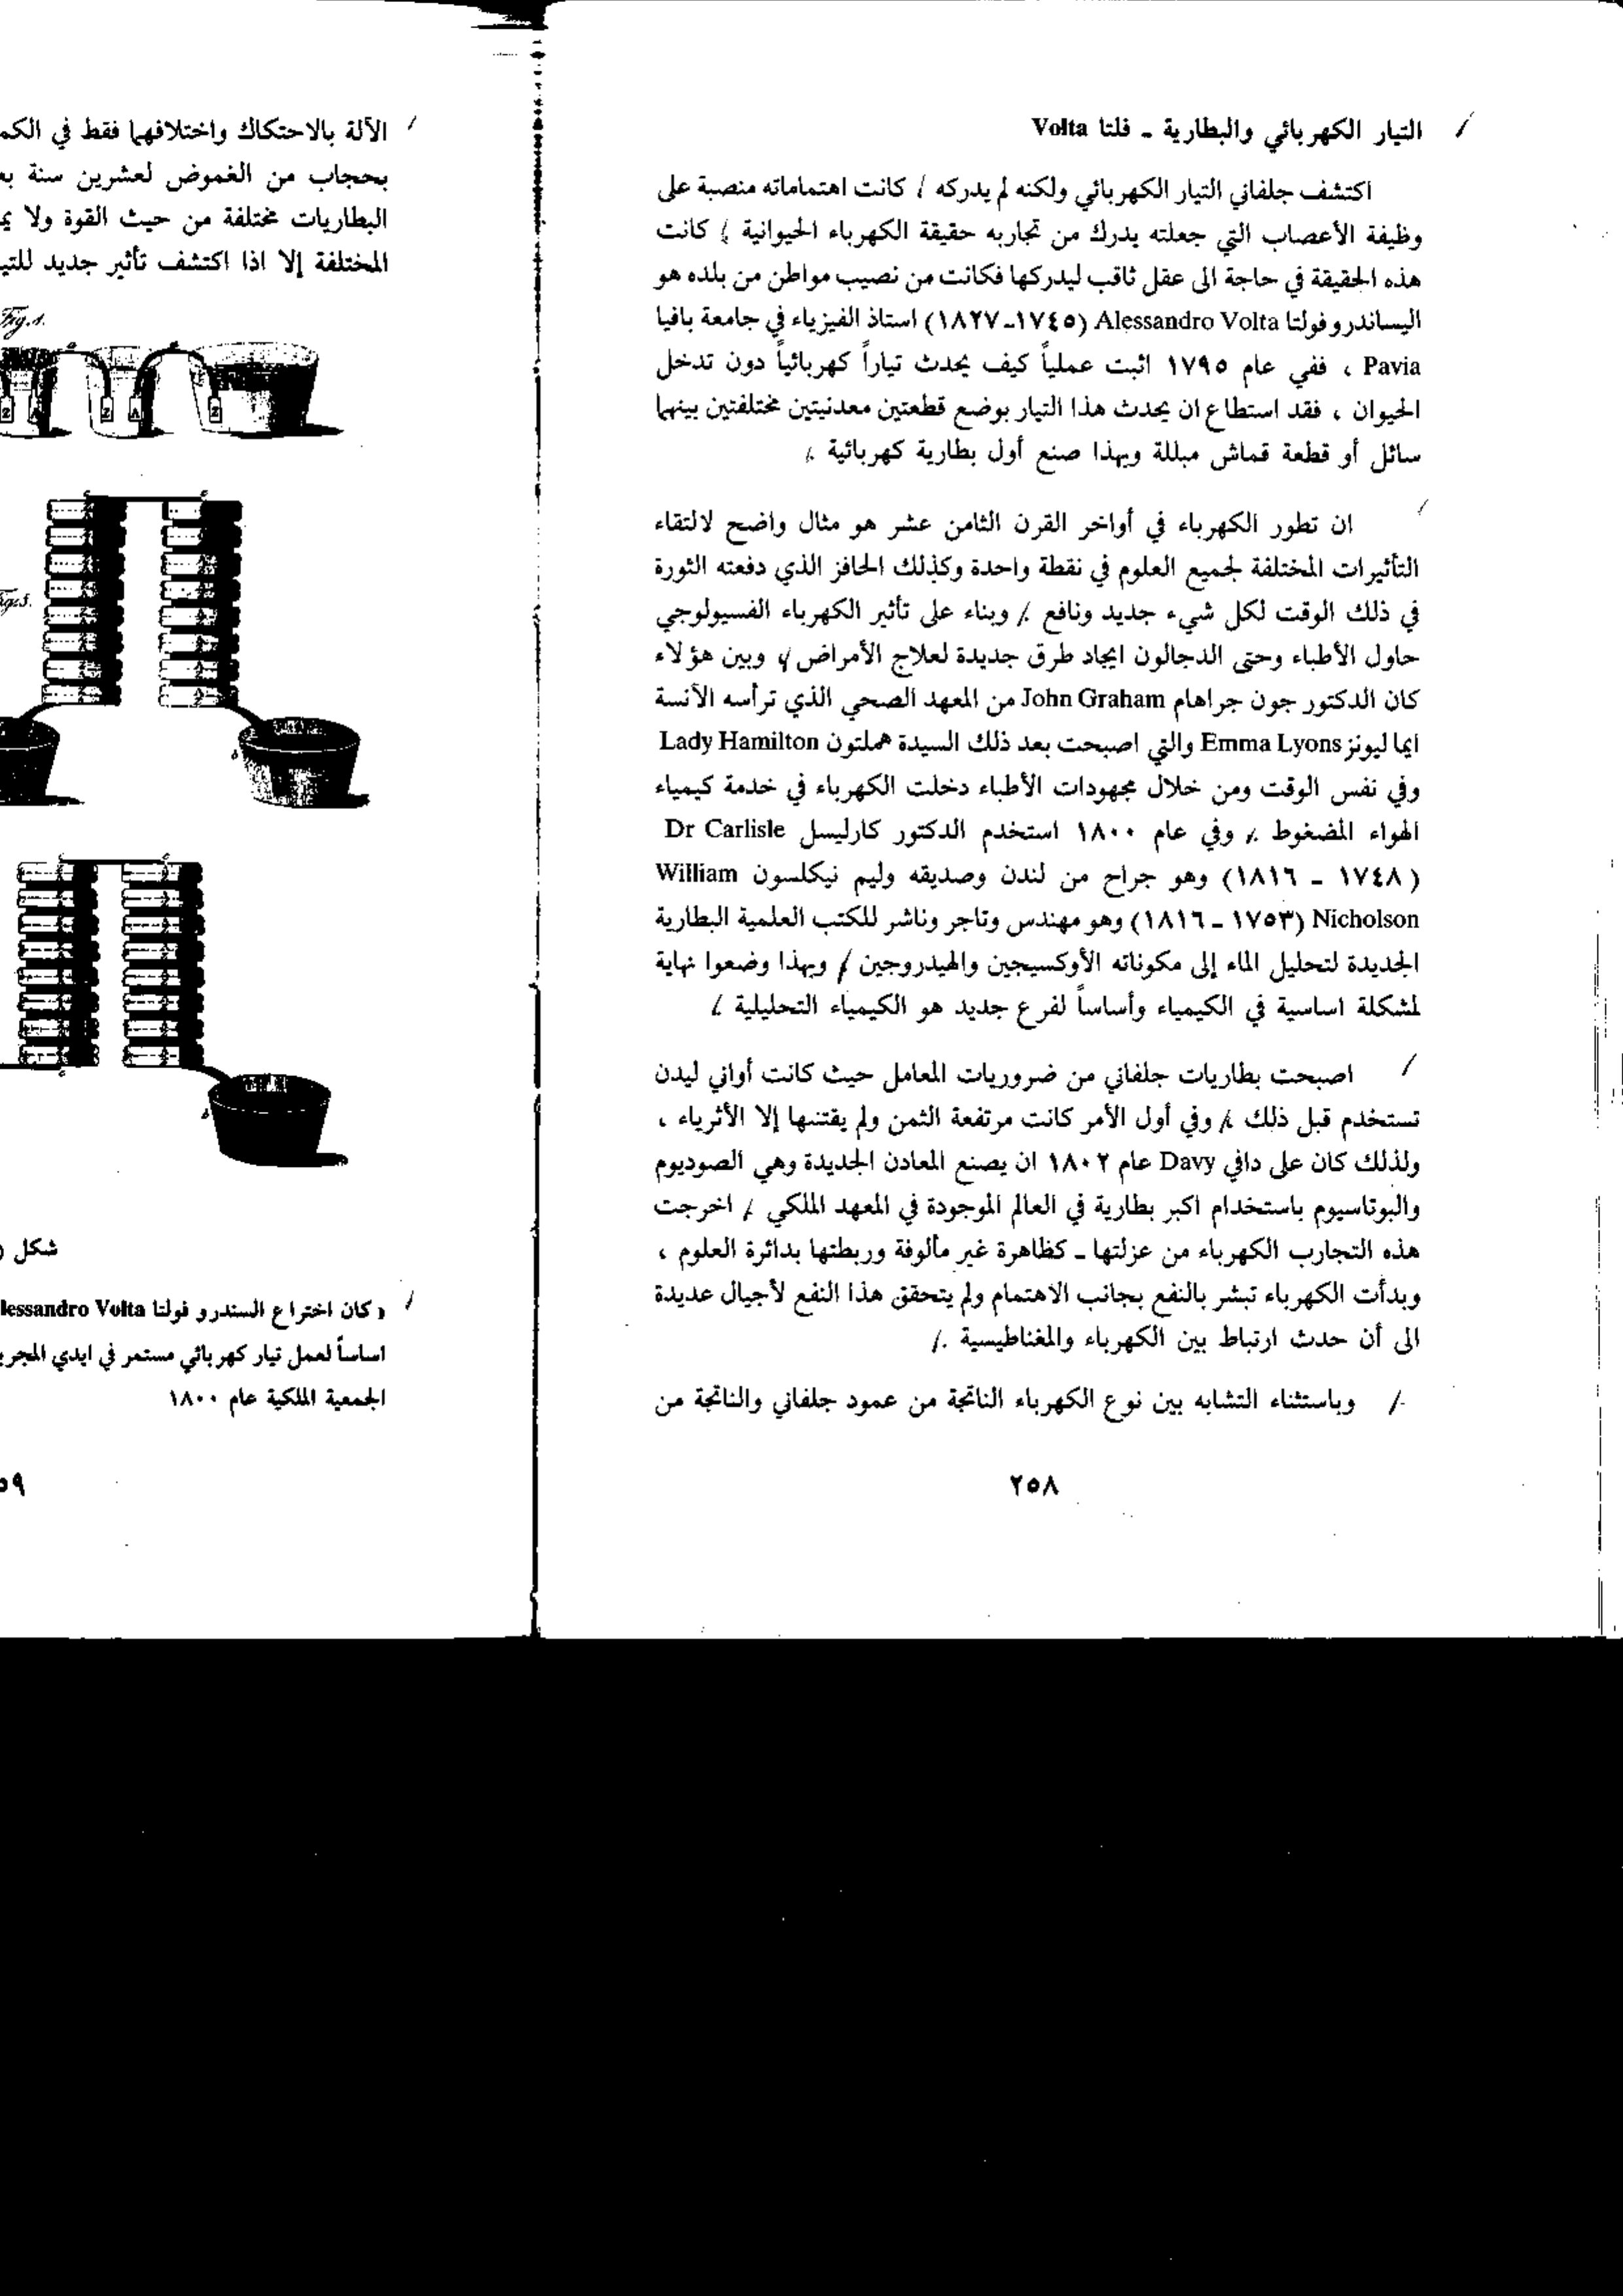 التيار الكهربائي والبطارية ـ فلتا Volta
اكتشف جلفاني التيار الكهربائي ولكنه لم يدركه / كانت اهتماماته منصبة على
وظيفة الأعصاب التي جعلته يدرك من تجاربه حقيقة الكهرباء الحيوانية / كانت
هذه الحقيقة في حاجة الى عقل ثاقب ليدركها فكانت من نصيب مواطن من بلده هو
اليساندرو فولتا Alessandro Volta (١٧٤٥-١٨٢٧) استاذ الفيزياء في جامعة بافيا
Pavia ، ففي عام ١٧٩٥ اثبت عملياً كيف يحدث تياراً كهربائياً دون تدخل
الحيوان ، فقد استطاع ان يحدث هذا التيار بوضع قطعتين معدنيتين مختلفتين بينهما
سائل أو قطعة قماش مبللة وبهذا صنع أول بطارية كهربائية /.
ان تطور الكهرباء في أواخر القرن الثامن عشر هو مثال واضح لالتقاء
التأثيرات المختلفة لجميع العلوم في نقطة واحدة وكذلك الحافز الذي دفعته الثورة
في ذلك الوقت لكل شيء جديد ونافع /. وبناء على تأثير الكهرباء الفسيولوجي
حاول الأطباء وحتى الدجالون ايجاد طرق جديدة لعلاج الأمراض / وبين هؤلاء
كان الدكتور جون جراهام John Graham من المعهد الصحي الذي ترأسه الآنسة
ايما ليونز Emma Lyons والتي اصبحت بعد ذلك السيدة هملتون Lady Hamilton
وفي نفس الوقت ومن خلال مجهودات الأطباء دخلت الكهرباء في خدمة كيمياء
الهواء المضغوط /. وفي عام ١٨٠٠ استخدم الدكتور كارليسل Dr Carlisle
(١٧٤٨ - ١٨١٦) وهو جراح من لندن وصديقه وليم نيكلسون William
Nicholson (١٧٥٣ - ١٨١٦) وهو مهندس وتاجر وناشر للكتب العلمية البطارية
الجديدة لتحليل الماء إلى مكوناته الأوكسيجين والهيدروجين / وبهذا وضعوا نهاية
لمشكلة اساسية في الكيمياء وأساساً لفرع جديد هو الكيمياء التحليلية /.
اصبحت بطاريات جلفاني من ضروريات المعامل حيث كانت أواني ليدن
تستخدم قبل ذلك /. وفي أول الأمر كانت مرتفعة الثمن ولم يقتنها إلا الأثرياء ،
ولذلك كان على دافي Davy عام ١٨٠٢ ان يصنع المعادن الجديدة وهي الصوديوم
والبوتاسيوم باستخدام اكبر بطارية في العالم الموجودة في المعهد الملكي /. اخرجت
هذه التجارب الكهرباء من عزلتها ـ كظاهرة غير مألوفة وربطتها بدائرة العلوم ،
وبدأت الكهرباء تبشر بالنفع بجانب الاهتمام ولم يتحقق هذا النفع لأجيال عديدة
الى أن حدث ارتباط بين الكهرباء والمغناطيسية /.
وباستثناء التشابه بين نوع الكهرباء الناتجة من عمود جلفاني والناتجة من
٢٥٨
الآلة بالاحتكاك واختلافهما فقط في
بحجاب من الغموض لعشرين سنة
البطاريات مختلفة من حيث القوة ولا
المختلفة إلا اذا اكتشف تأثير جديد
Fig.1.
Z A Z A Z
شكل
وكان اختراع السندرو فولتا lessandro Volta
اساساً لعمل تيار كهربائي مستمر في ايدي
الجمعية الملكية عام ١٨٠٠